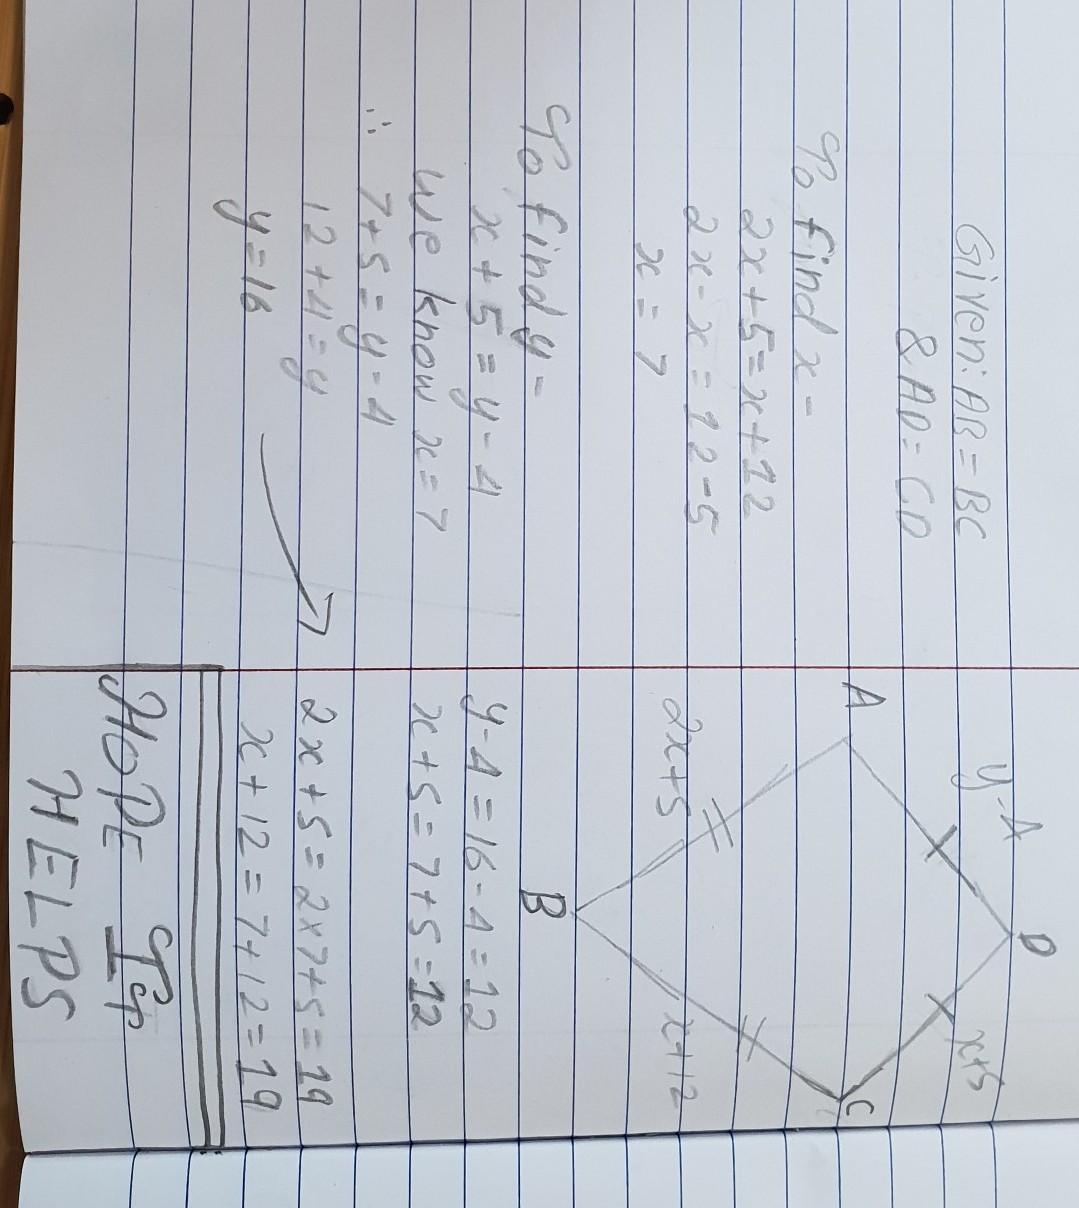 Given: AB = BC
& AD = CD
To find x -
2x + 5 = x + 12
2x - x = 12 - 5
x = 7
To find y -
x + 5 = y - 4
We know x = 7
∴ 7 + 5 = y - 4
12 + 4 = y
y = 16
D
y-4
x+5
A
C
2x+5
x+12
B
y - 4 = 16 - 4 = 12
x + 5 = 7 + 5 = 12
2x + 5 = 2×7 + 5 = 19
x + 12 = 7 + 12 = 19
HOPE IT
HELPS